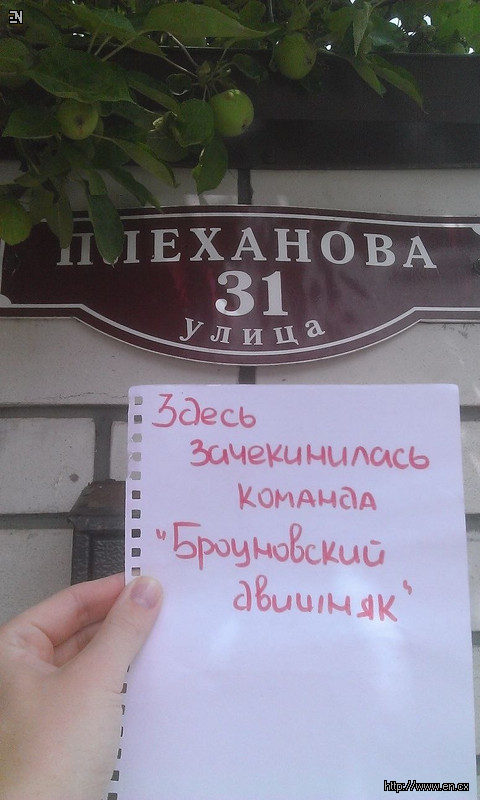 EN
ПЛЕХАНОВА
31
улица
Здесь
зачекинилась
команда
"Броуновский
двишняк"
http://www.en.cx